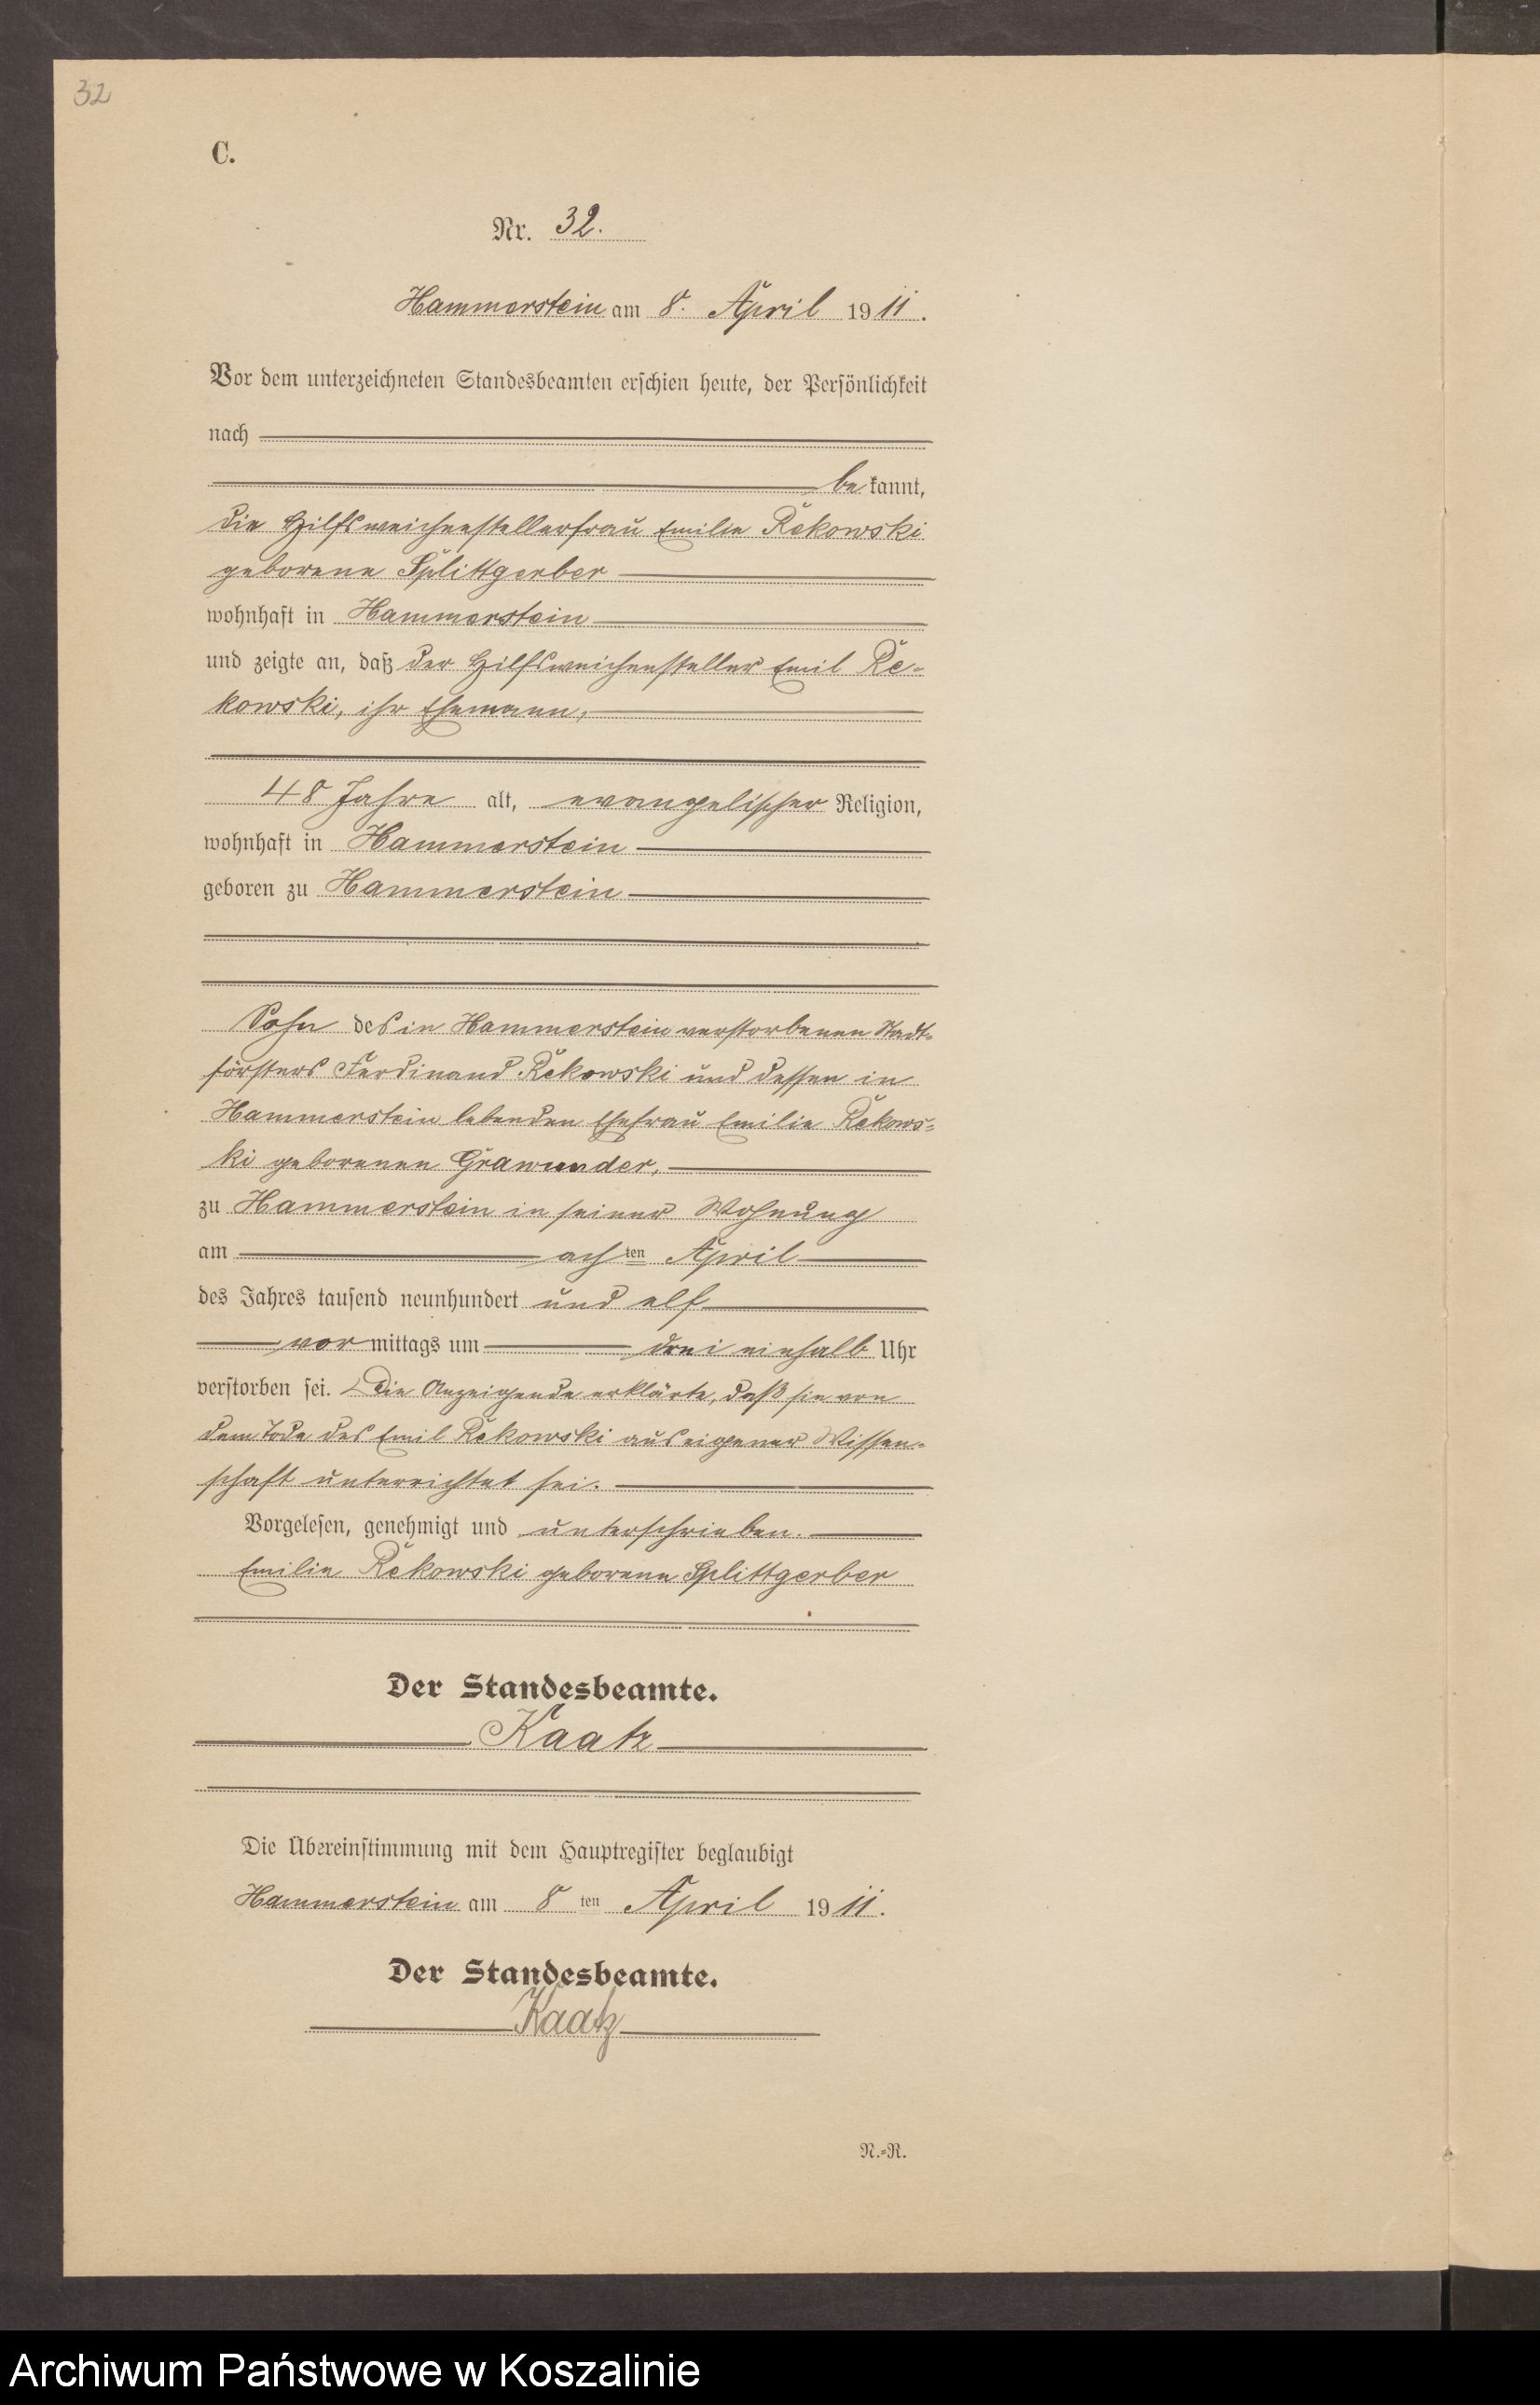 32
C.
Nr. 32.
Hammerstein am 8. April 1911.
Vor dem unterzeichneten Standesbeamten erschien heute, der Persönlichkeit
nach
be kannt,
die Hilfsweichenstellerfrau Emilie Rekowski
geborene Splittgerber
wohnhaft in Hammerstein
und zeigte an, daß der Hilfsweichensteller Emil Re-
kowski, ihr Ehemann,
48 Jahre alt, evangelischer Religion,
wohnhaft in Hammerstein
geboren zu Hammerstein
Sohn des in Hammerstein verstorbenen Stadt-
försters Ferdinand Rekowski und dessen in
Hammerstein lebenden Ehefrau Emilie Rekows-
ki geborenen Grawunder,
zu Hammerstein in seiner Wohnung
am achten April
des Jahres tausend neunhundert und elf
vor mittags um drei einhalb Uhr
verstorben sei. Die Anzeigende erklärte, daß sie von
dem Tode des Emil Rekowski aus eigener Wissen-
schaft unterrichtet sei.
Vorgelesen, genehmigt und unterschrieben.
Emilie Rekowski geborene Splittgerber
Der Standesbeamte.
Kaatz
Die Übereinstimmung mit dem Hauptregister beglaubigt
Hammerstein am 8 ten April 1911.
Der Standesbeamte.
Kaatz
N.-R.
Archiwum Państwowe w Koszalinie